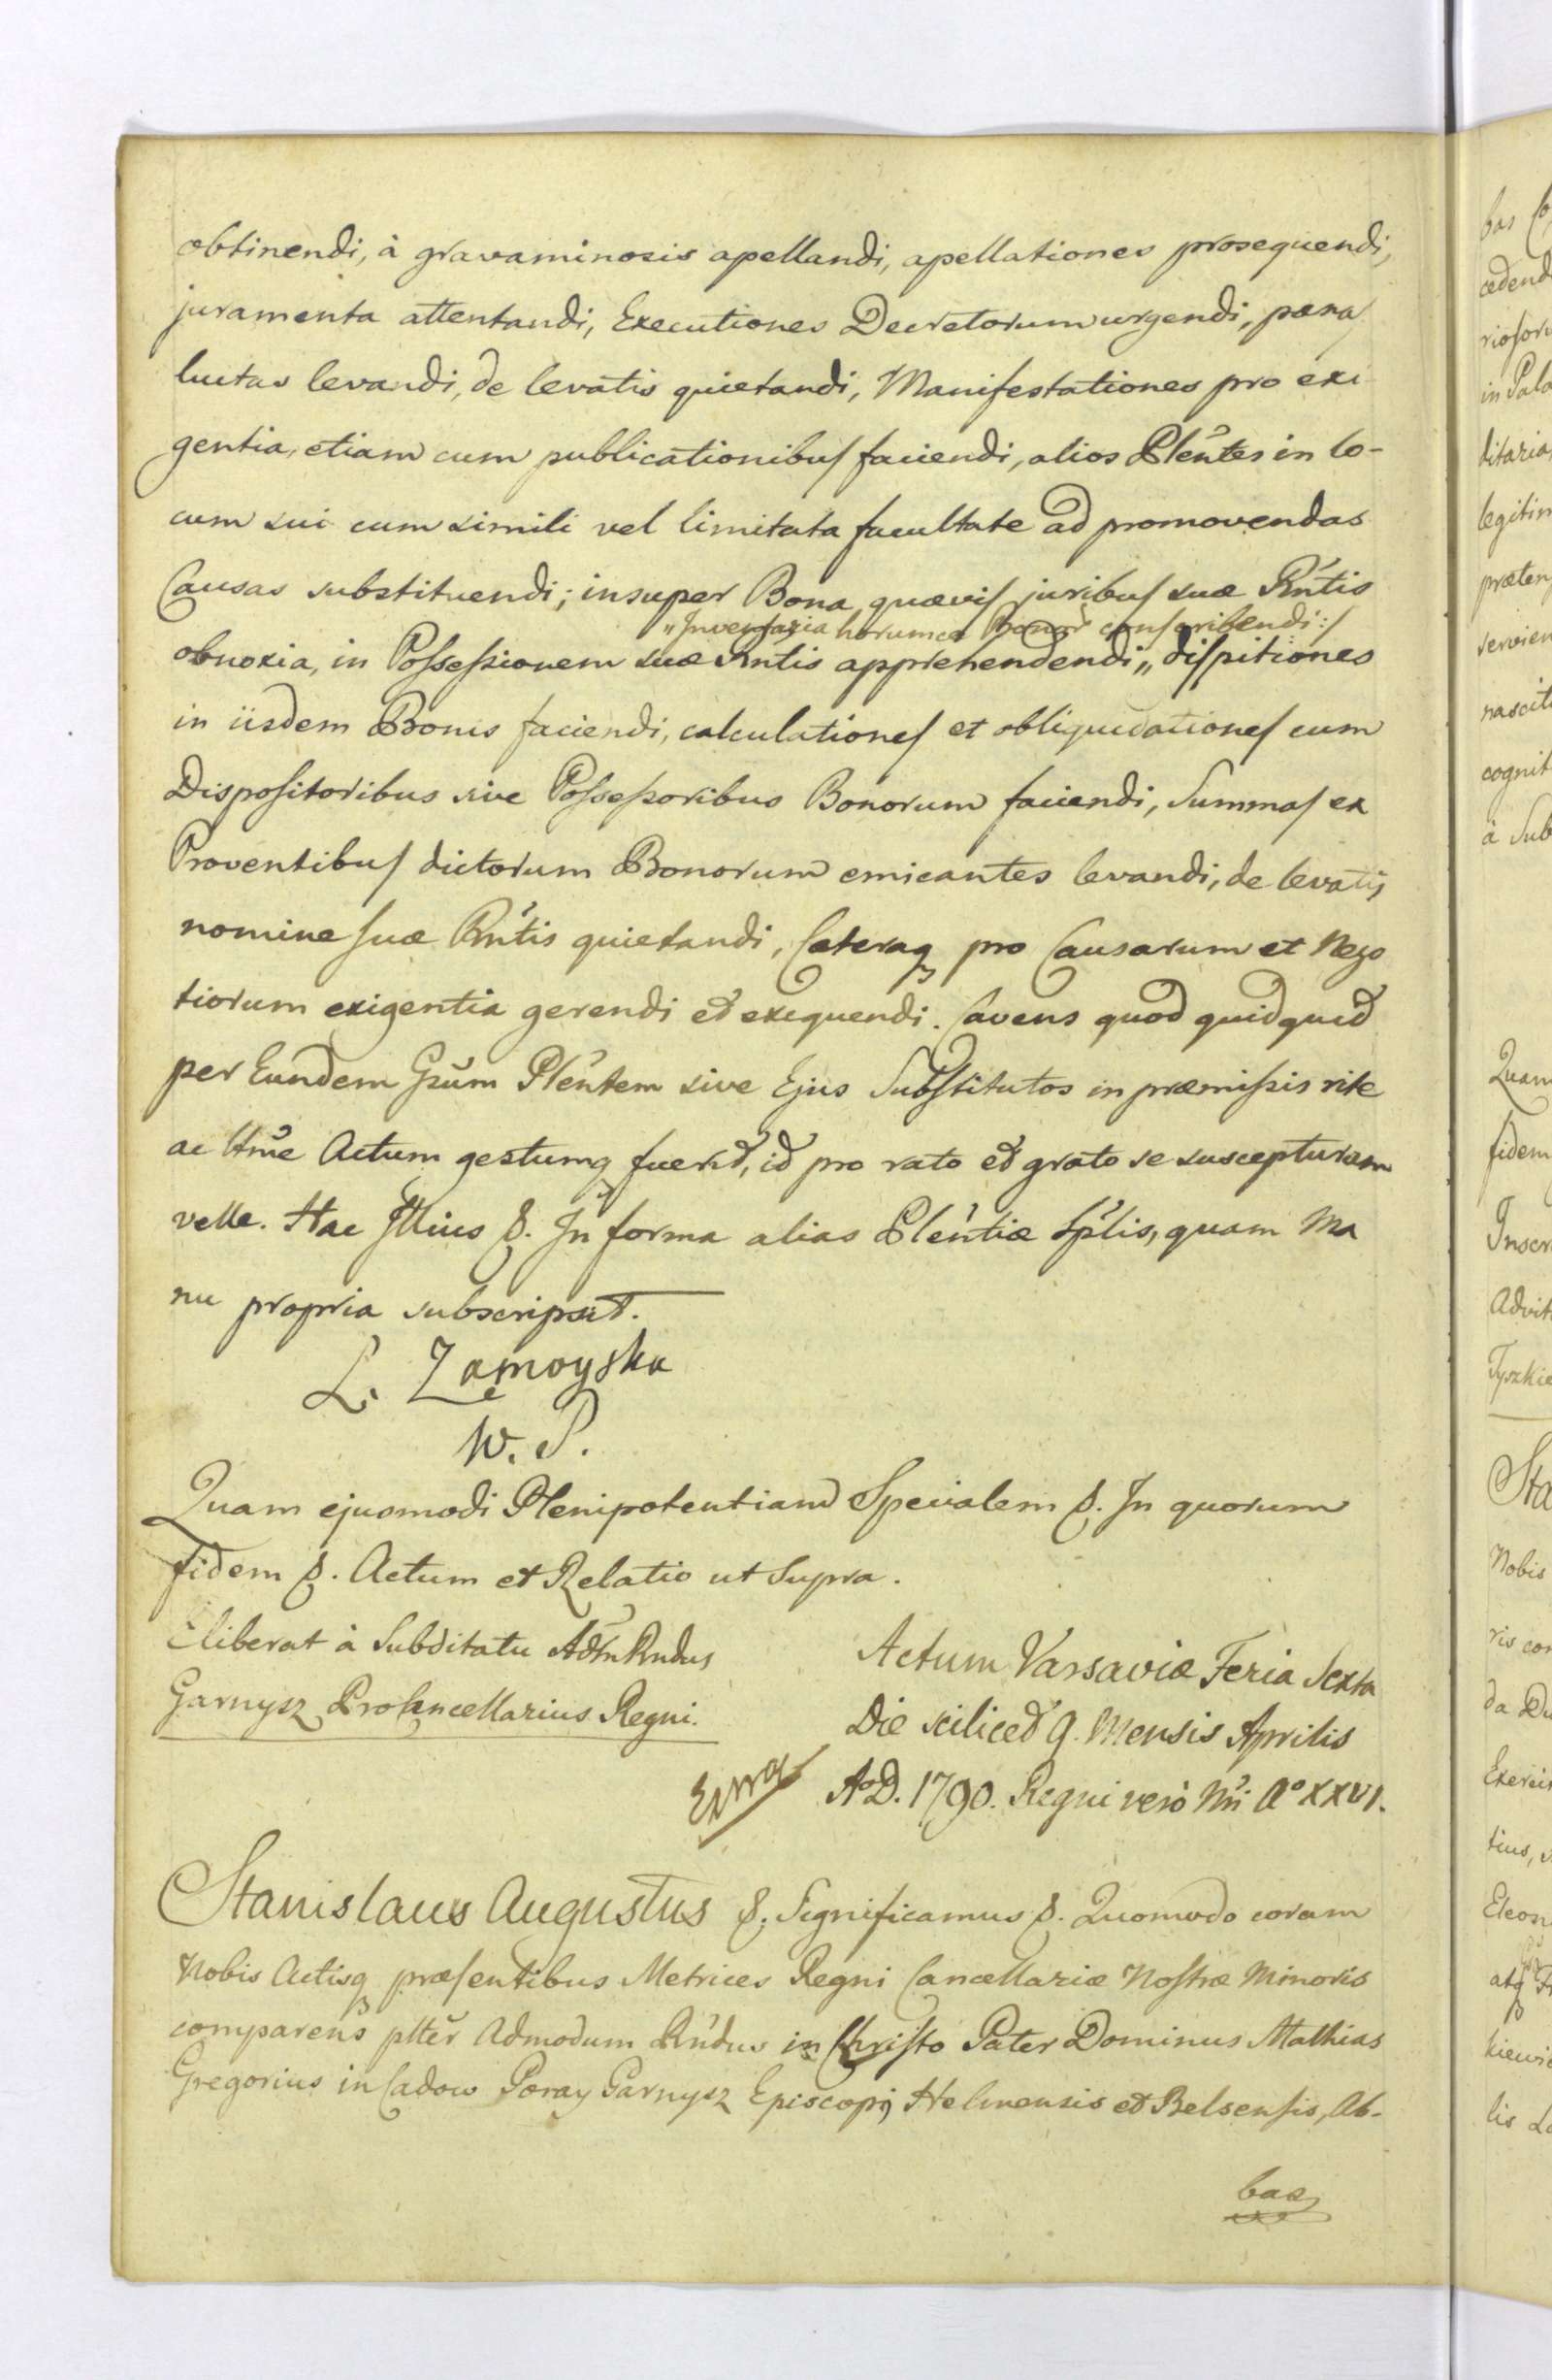 obtinendi, à gravaminosis apellandi, apellationes prosequendi,
juramenta attentandi, Executiones Decretorum urgendi, pæna
luitas levandi, de levatis quietandi, Manifestationes pro exi
gentia, etiam cum publicationibus faciendi, alios Plentes in lo-
cum sui cum simili vel limitata facultate ad promovendas
Causas substituendi; insuper Bona, quævis juribus suæ Rntis
„Inventaria horumce Bonor conscribendi:/
obnoxia, in Possessionem suæ Rntis apprehendendi „ dispitiones
in iisdem Bonis faciendi, calculationes et obliquidationes cum
Dispositoribus sive Possessoribus Bonorum faciendi, Summas ex
Proventibus dictorum Bonorum emicantes levandi, de levatis
nomine suæ Rntis quietandi, Cæteraq pro Causarum et Nego
tiorum exigentia gerendi et exequendi. Cavens quod quidquid
per Eundem Gsum Plentem sive Ejus Substitutos in præmissis rite
ac ltme Actum gestumq fuerit, id pro rato et grato se suscepturam
velle. Hac Illius &. In forma alias Plentiæ Splis, quam Ma
nu propria subscripsit.
L. Zamoyska
W. P.
Quam ejusmodi Plenipotentiam Specialem &. In quorum
fidem &. Actum et Relatio ut Supra.
Eliberat à Subditatu Adm Rndus
Garnysz Procancellarius Regni.
Actum Varsaviæ Feria Sexta
Die scilicet 9. Mensis Aprilis
AoD. 1790. Regni verò Nri Ao XXVI.
Stanislaus Augustus &. Significamus &. Quomodo coram
Nobis Actisq præsentibus Metrices Regni Cancellariæ Nostræ Minoris
comparens plter Admodum Rndus in Christo Pater Dominus Mathias
Gregorius in Cadow Poray Garnysz Episcopq Helmensis et Belsensis, Ab-
bas